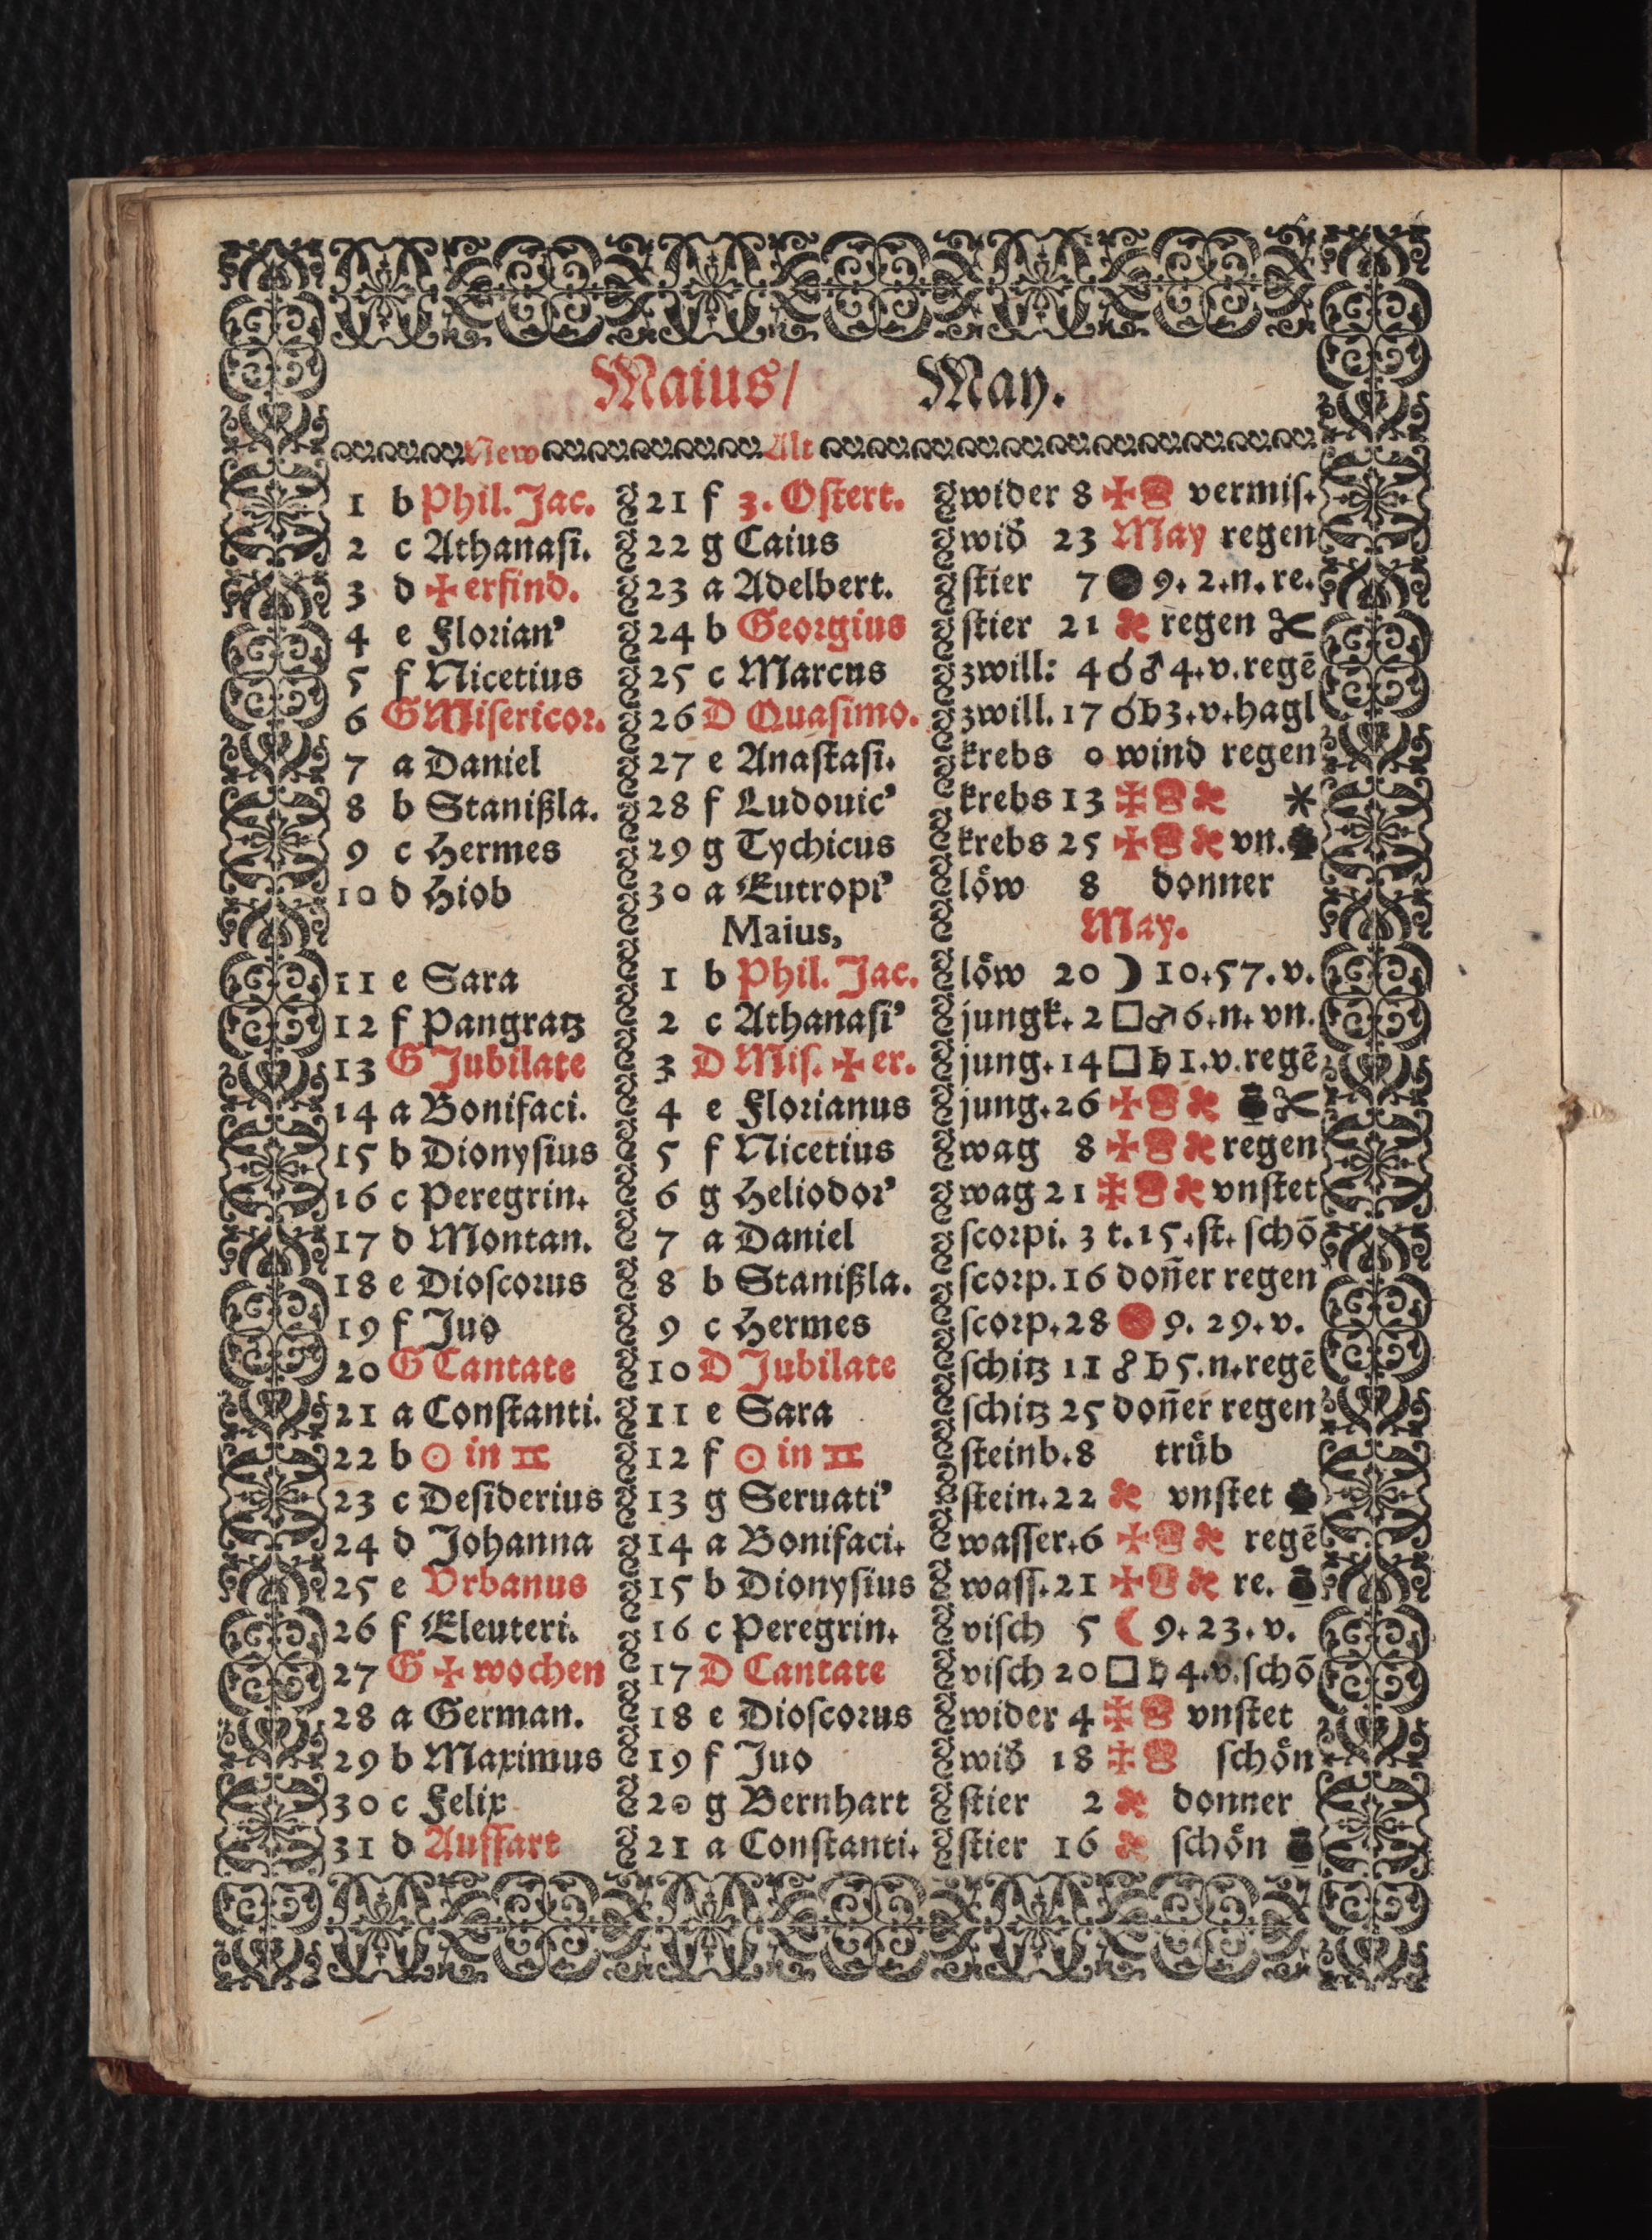 Maius/ May.
New Alt
1 b Phil. Jac. 21 f 3. Ostert. wider 8 ✠ vermis.
2 c Athanasi. 22 g Caius wid 23 May regen
3 d ✠ erfind. 23 a Adelbert. stier 7 ● 9. 2. n. re.
4 e Florian' 24 b Georgius stier 21 regen ✂
5 f Nicetius 25 c Marcus zwill: 4 ☌ ♂ 4. v. regē
6 G Misericor. 26 D Quasimo. zwill. 17 ☌ ♄ 3. v. hagl
7 a Daniel 27 e Anastasi. krebs 0 wind regen
8 b Stanißla. 28 f Ludouic' krebs 13 ✠ *
9 c Hermes 29 g Tychicus krebs 25 ✠ vn.
10 d Hiob 30 a Eutropi' löw 8 donner
Maius, May.
11 e Sara 1 b Phil. Jac. löw 20 ☽ 10. 57. v.
12 f Pangratz 2 c Athanasi' jungk. 2 □ ♂ 6. n. vn.
13 G Jubilate 3 D Mis. ✠ er. jung. 14 □ ♄ 1. v. regē
14 a Bonifaci. 4 e Florianus jung. 26 ✠ ✂
15 b Dionysius 5 f Nicetius wag 8 ✠ regen
16 c Peregrin. 6 g Heliodor' wag 21 ✠ vnstet
17 d Montan. 7 a Daniel scorpi. 3 t. 15. st. schō
18 e Dioscorus 8 b Stanißla. scorp. 16 doñer regen
19 f Juo 9 c Hermes scorp. 28 ● 9. 29. v.
20 G Cantate 10 D Jubilate schitz 11 ☍ ♄ 5. n. regē
21 a Constanti. 11 e Sara schitz 25 doñer regen
22 b ☉ in ♊ 12 f ☉ in ♊ steinb. 8 trüb
23 c Desiderius 13 g Seruati' stein. 22 vnstet
24 d Johanna 14 a Bonifaci. wasser. 6 ✠ regē
25 e Vrbanus 15 b Dionysius wass. 21 ✠ re.
26 f Eleuteri. 16 c Peregrin. visch 5 ☾ 9. 23. v.
27 G ✠ wochen 17 D Cantate visch 20 □ ♄ 4. v. schō
28 a German. 18 e Dioscorus wider 4 ✠ vnstet
29 b Maximus 19 f Juo wid 18 ✠ schön
30 c Felix 20 g Bernhart stier 2 donner
31 d Auffart 21 a Constanti. stier 16 schön